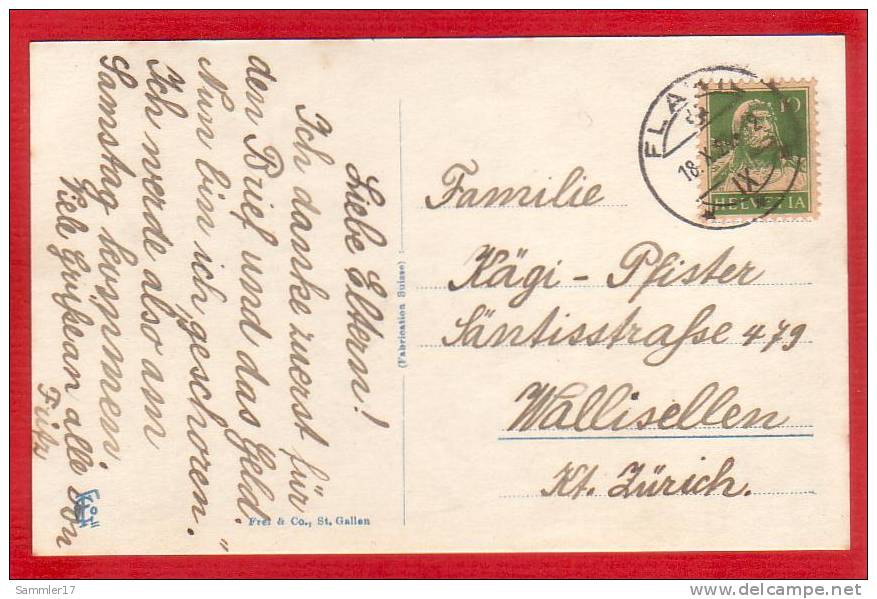 Liebe Eltern!
Ich danke zuerst für
den Brief und das Geld.
Nun bin ich "geschoren."
Ich werde also am
Samstag kommen.
Viele Grüße an alle von
Fritz
Familie
Kägi - Pfister
Säntisstraße 479
Wallisellen
Kt. Zürich.
(Fabrication Suisse)
Frei & Co., St. Gallen
10
HELVETIA
18. X.
IX
Sammler17
delcampe.net